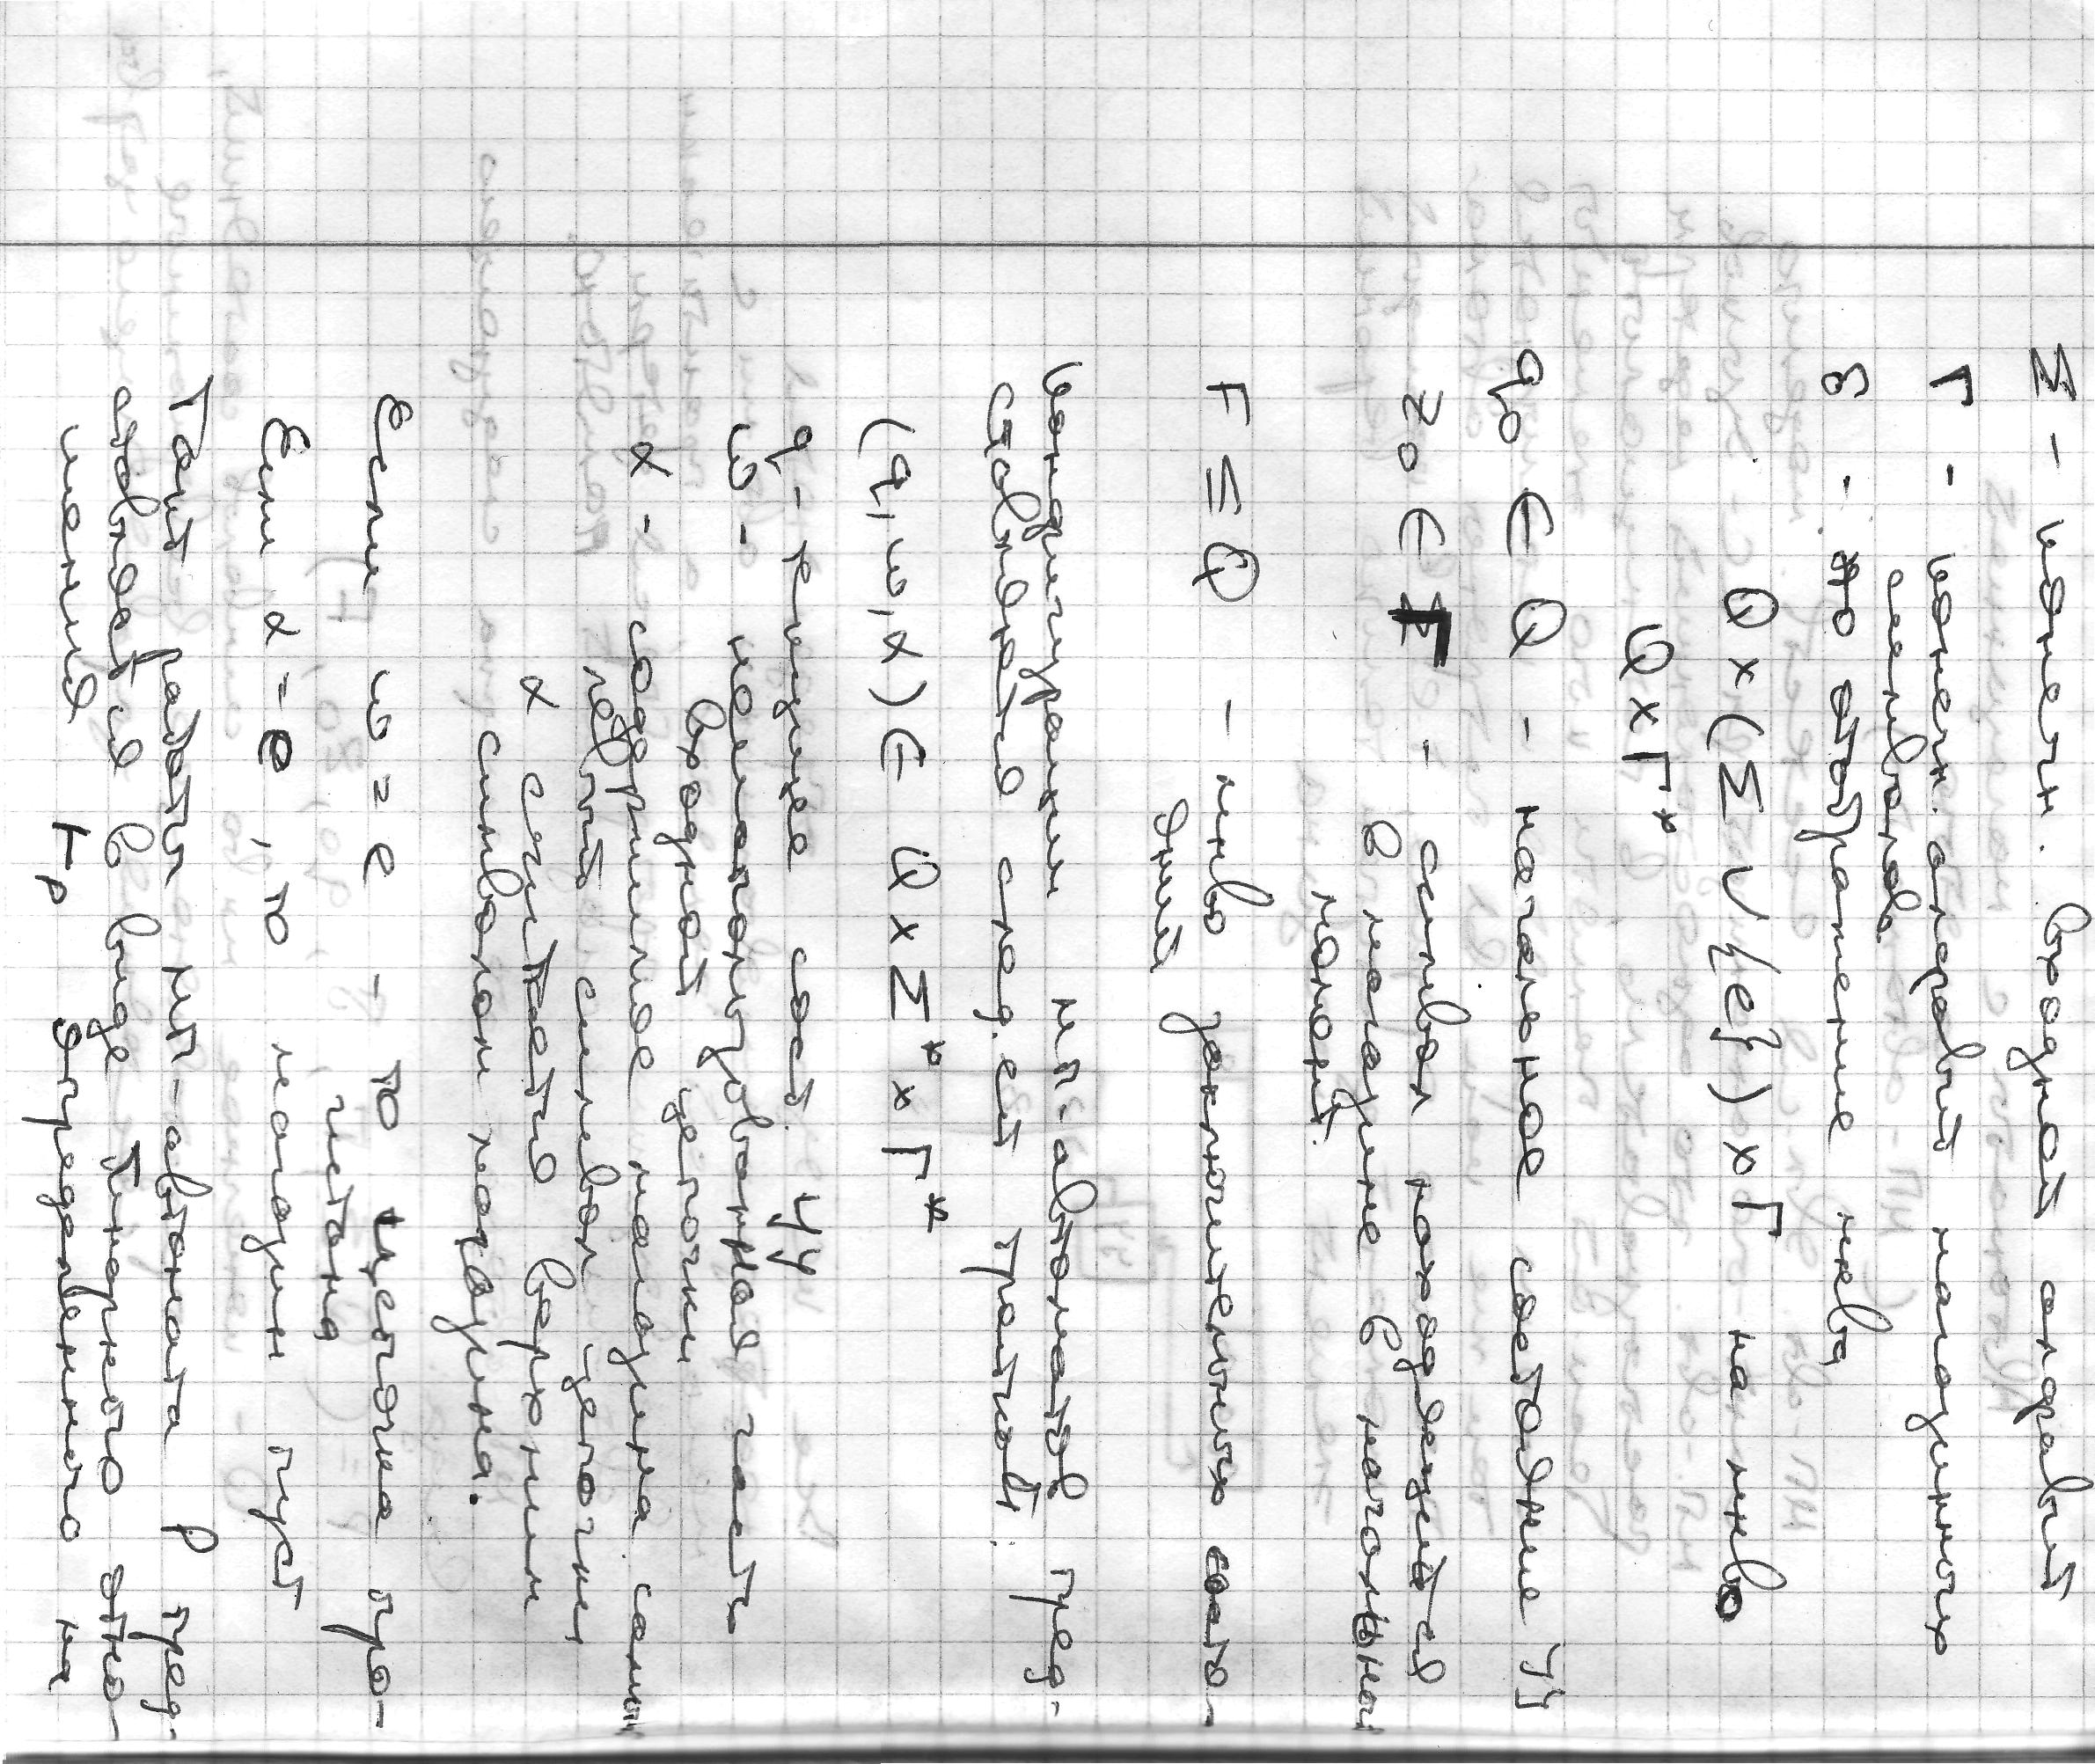 Σ - конечн. входной алфавит
Г - конечн. алфавит магазинных
символов
δ - это отображение мн-ва
Q × (Σ ∪ {e}) × Г на мн-во
Q × Г*
q0 ∈ Q - начальное состояние УУ
z0 ∈ Г - символ находящийся
в магазине в начальный
момент.
F ⊆ Q - мн-во заключительных состо-
яний
Конфигурации МП-автоматов пред-
ставляется след. ей тройкой:
(q, ω, α) ∈ Q × Σ* × Г*
q - текущее сост. УУ
ω - неиспользованная часть
входной цепочки
α - содержимое магазина самый
левый символ цепочки
α считается верхним
символом магазина.
Если ω = e - то цепочка про-
читана
Если α = e, то магазин пуст
Такт работы МП-автомата P пред-
ставляется в виде бинарного отно-
шения ⊢p определенного на